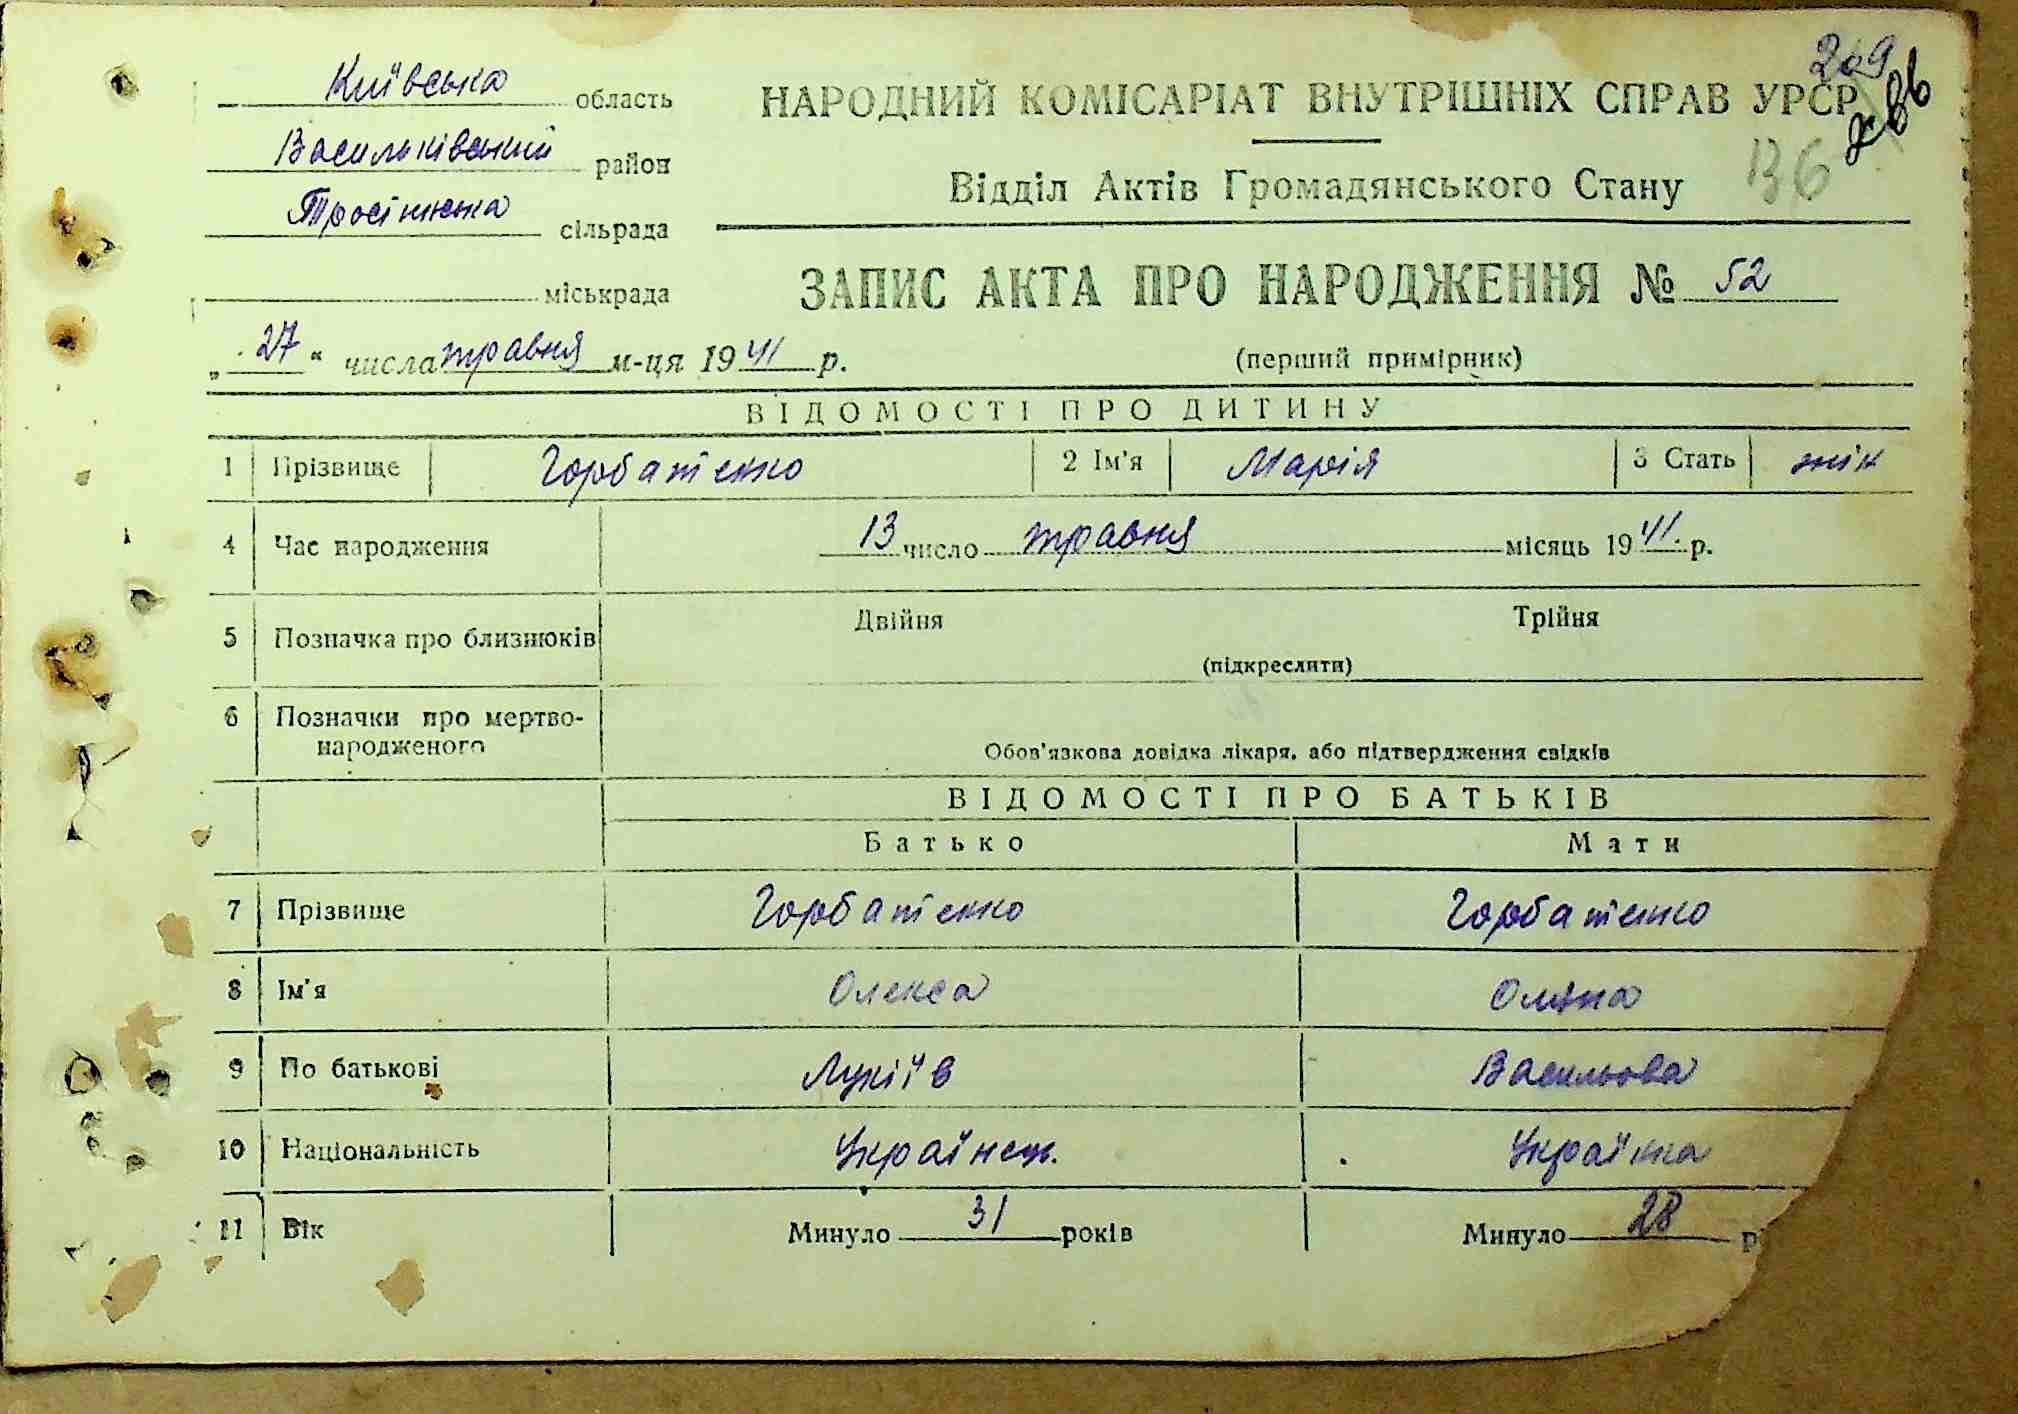 Київська область
Васильківський район
Тросинська сільрада
міськрада
269
286
136
НАРОДНИЙ КОМІСАРІАТ ВНУТРІШНІХ СПРАВ УРСР
Відділ Актів Громадянського Стану
ЗАПИС АКТА ПРО НАРОДЖЕННЯ № 52
„27“ числа травня м-ця 1941 р.
(перший примірник)
ВІДОМОСТІ ПРО ДИТИНУ
1 Прізвище Горбатенко 2 Ім'я Марія 3 Стать жін
4 Час народження 13 число травня місяць 1941. р.
5 Позначка про близнюків Двійня Трійня
(підкреслити)
6 Позначки про мертво-
народженого
Обов'язкова довідка лікаря, або підтвердження свідків
ВІДОМОСТІ ПРО БАТЬКІВ
Батько Мати
7 Прізвище Горбатенко Горбатенко
8 Ім'я Олекса
9 По батькові Лукіїв Васильова
10 Національність Українец. Українка
11 Вік Минуло 31 років Минуло 28 р